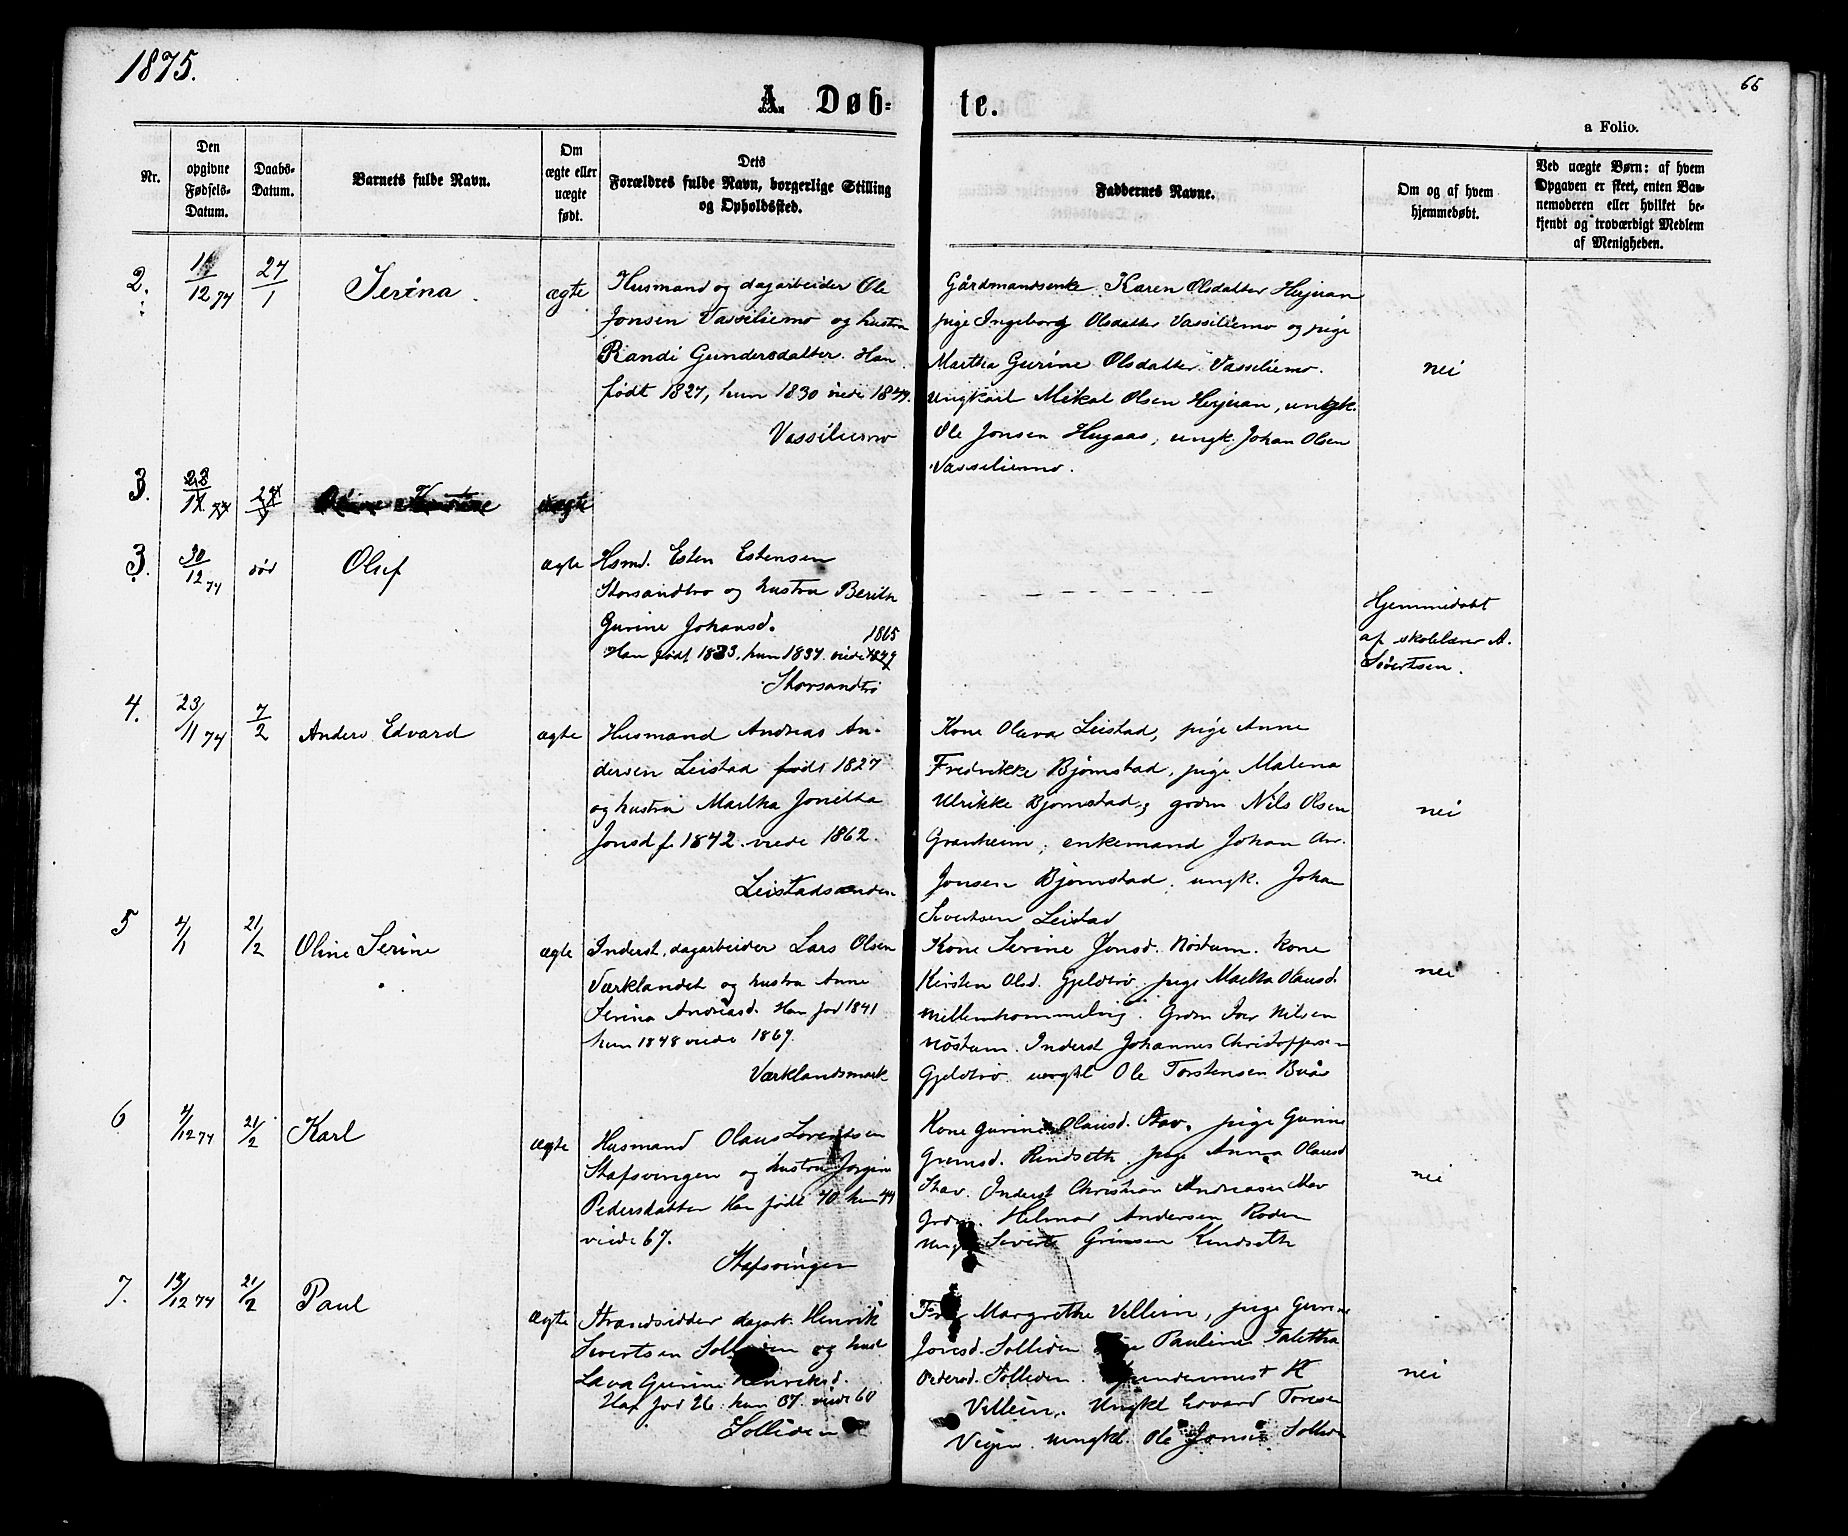 1875.
66
A. Døb-
te.
a Folio.
Nr.
Den opgivne Fødsels-Datum.
Daabs-Datum.
Barnets fulde Navn.
Om ægte eller uægte født.
Dets Forældres fulde Navn, borgerlige Stilling og Opholdssted.
Faddernes Navne.
Om og af hvem hjemmedøbt.
Ved uægte Børn: af hvem Opgaven er skeet, enten Barnemoderen eller hvilket bekjendt og troværdigt Medlem af Menigheden.
2.
12 74
27/1
Serina
ægte
Husmand og dagarbeider Ole
Jonsen Vassiliemo og hustru
Randi Gundersdatter. Han
født 1827, hun 1830 viede
Vassiliemo
Gårdmandsenke Karen Olsdatter
pige Ingeborg Olsdatter Vassiliemo og pige
Martha Gurine Olsdatter Vassiliemo.
Ungkarl Mikal Olsen
Ole Jonsen Hugaas, ungk. Johan Olsen
Vassiliemo.
nei
3.
3.
30/12 74
død
Oluf
ægte
Hsmd. Esten Estensen
Storsandtrø og hustru Berith
Gurine Johansd.
1865
Han født 1833, hun 1837. viede
Storsandtrø
Hjemmedøbt
af skolelærer A.
Sivertsen.
4.
23/11 74
7/2
Anders Edvard
ægte
Husmand Andreas An-
dersen Leistad født 1827
og hustru Martha Jonetta
Jonsd f. 1842 viede 1862.
Leistadsanden
Kone Olava Leistad, pige Anne
Fredrikke Bjørnstad, pige Malena
Ulrikke Bjørnstad, grdm Nils Olsen
Granheim, enkemand Johan An.
Jonsen Bjørnstad, ungk. Johan
Sivertsen Leistad
nei
5
4/1
21/2
Oline Serine
ægte
Inderst, dagarbeider Lars Olsen
Værklandet og hustru Anne
Serina Andreasd. Han fød 1841
hun 1848 viede 1869.
Værklandsmark
Kone Serine Jonsd. Røstum. Kone
Kirsten Olsd. Gjeldtrø. pige Martha Olausd.
Grdm Iver Nilsen
Røstum. Inderst Johannes Christoffersen
Gjeldtrø ungkl Ole Torstensen Buås
nei
6
4/12 74
21/2
Karl
ægte
Husmand Olaus Lorentsen
Stafsvingen og hustru Jørgine
Pedersdatter Han født 40 hun 44
viede 67.
Stafsvingen
Kone Gurine Olausd. Stav. pige Gurine
Grimsd. Rindseth. pige Anna Olausd
Stav. Inderst Christian Andreasen Mov
Grdm. Helmer Andersen Roden
Ungk Sivert Grimsen Rindseth
nei
7.
13/12 74
21/2
Paul
ægte
Strandsidder dagarb. Henrik
Sivertsen Solliden og hust
Lava Gurine Henriksd.
Han fød 26 hun 37 viede 60
Solliden
Margrethe Villein, pige Gurine
Jonsd. Solliden Pauline Taletha
Pedersd. Solliden.
Villein. Ungkl Edvard Toresen
Vejen ungkl. Ole Jonsen Solliden
nei